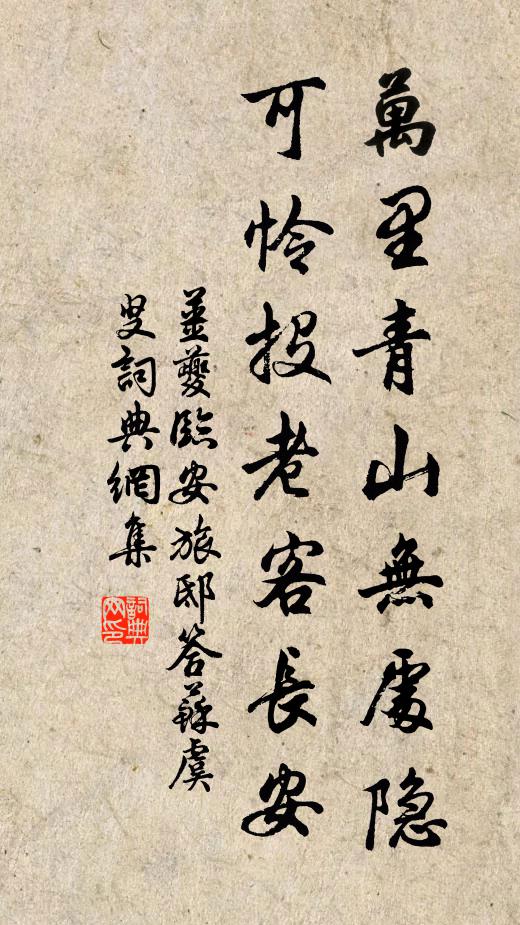 萬里青山無處隐
可怜投老客長安
姜夔臨安旅邸答蘇虞
叟詞典網集
詞典
网印